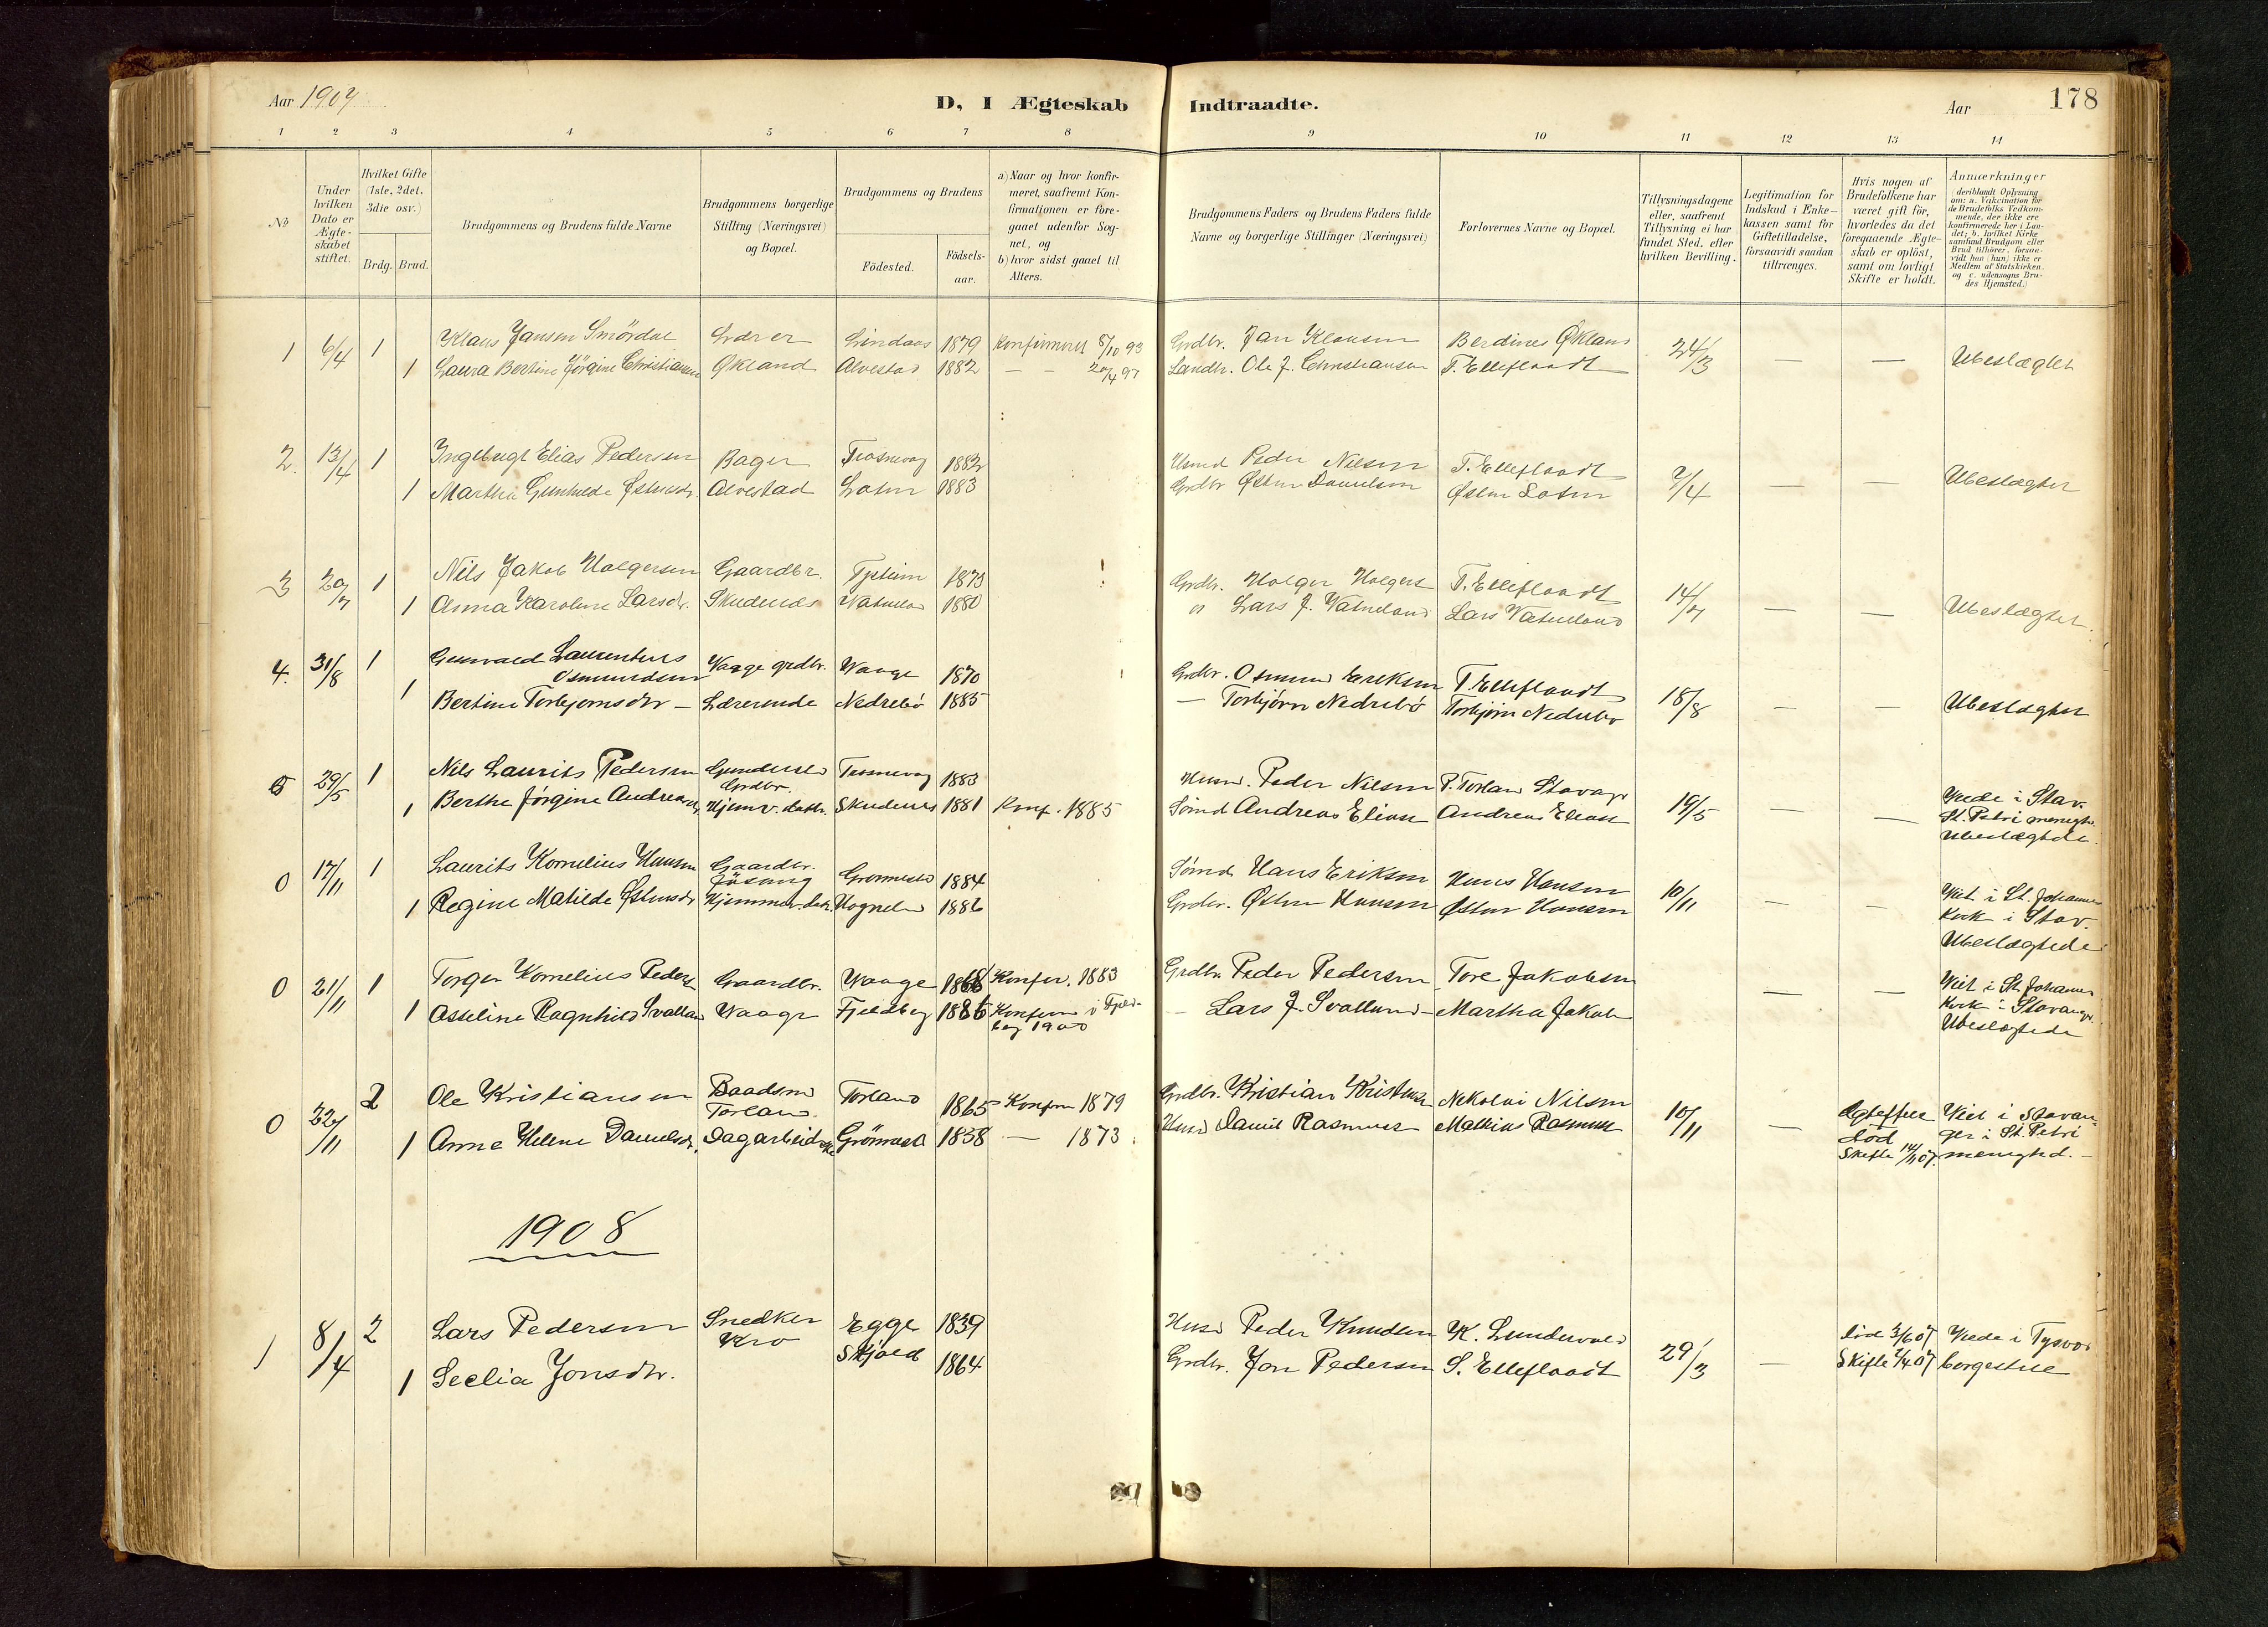 Aar 1907
D, I Ægteskab Indtraadte.
Aar 178
1 2 3 4 5 6 7 8 9 10 11 12 13 14
No
Under hvilken Dato er Ægteskabet stiftet.
Hvilket Gifte (1ste, 2det, 3die osv.)
Brdg. Brud.
Brudgommens og Brudens fulde Navne
Brudgommens borgerlige Stilling (Næringsvei) og Bopæl.
Brudgommens og Brudens
Födested.
Födselsaar.
a) Naar og hvor konfirmeret, saafremt Konfirmationen er foregaaet udenfor Sognet, og
b) hvor sidst gaaet til Alters.
Brudgommens Faders og Brudens Faders fulde Navne og borgerlige Stillinger (Næringsvei)
Forlovernes Navne og Bopæl.
Tillysningsdagene eller, saafremt Tillysning ei har fundet Sted, efter hvilken Bevilling.
Legitimation for Indskud i Enkekassen samt for Giftetilladelse, forsaavidt saadan tiltrænges.
Hvis nogen af Brudefolkene har været gift för, hvorledes da det foregaaende Ægteskab er oplöst, samt om lovligt Skifte er holdt.
Anmærkninger
(deriblandt Oplysning om: a. Vakcination for de Brudefolks Vedkommende, der ikke ere konfirmerede her i Landet; b. hvilket Kirkesamfund Brudgom eller Brud tilhörer, forsaavidt han (hun) ikke er Medlem af Statskirken, og c. udensogns Brudes Hjemsted.)
1 6/4 1 Klaus Jansen Smördal Lindaas 1879 Konfirmeret 8/10 93 Grdbr. Jan Klausen Berdines Økland 24/3 — — Ubeslægtet
1 Laura Bertine Jörgine Christiansen Økland Alvestad 1882 — — 20/4 97 Landh. Ole J. Christiansen T. Elleflaadt
2. 13/4 1 Ingebrigt Elias Pedersen Bager Trosnavag 1882 Husmd Peder Nilsen T. Elleflaadt 7/4 — — Ubeslægtet
1 Martha Gunhilde Østensdr. Alvestad 1883 Grdbr Østen Danielsen Østen
3 20/7 1 Nils Jakob Holgersen Gaardbr. 1879 Grdbr. Holger Holgers T. Elleflaadt 14/7 — — Ubeslægtet.
1 Anna Karoline Larsdr. Skudenes Vatneland 1880 " Lars J. Vatneland Lars Vatneland
4. 31/8 1 Gunvald Laurentius
Osmundsen Vaage grdbr. Vaage 1870 Grdbr. Osmund Eriksen T. Elleflaadt 18/8 — — Ubeslægtet
1 Bertine Torbjornsdtr — Lærerinde Nedrebö 1885 — Torbjörn Nedrebö Torbjörn Nedrebö
5 29/5 1 Nils Laurits Pedersen Grdbr. Trosnavag 1883 Husm. Peder Nilsen P. Torland Stavagr 19/5 — — Viede i Stav.
1 Berthe Jörgine Andreasdr. Hjemv. datter Skudenes 1881 Konf. 1885 Sömd Andreas Elias Andreas Elias St. Petri menigh.
Ubeslægtede.
0 17/11 1 Laurits Kornelius Hansen Gaardbr.
Jösang 1884 Sömd Hans Eriksen Hans Hansen 10/11 — — Viet i St. Johannes
1 Regine Matilde Østensdr Hjemmev. datr. 1886 Grdbr. Østen Hansen Østen Hansen Kirk i Stav.
Ubeslægtede
0 21/11 1 Torger Kornelius Peders Gaardbr. Vaage 1868 Konfir. 1883 Grdbr Peder Pedersen Tore Jakobsen — — Viet i St. Johannes
1 Asseline Ragnhild Svalland Vaage Fjeldberg 1886 Konfirm i Fjeldberg 1900 — Lars J. Svalland — Martha Jakobs Kirk i Stavanger.
Ubeslægtede
0 22/11 2 Ole Kristiansen Baadsmd
Torland Torland 1865 Konfirm 1879 Grdbr. Kristian Kristians Nikolai Nilsen 10/11 — Ægtefælle död Skifte 14/11 07. Viet i Stavanger i St. Petri menighed. —
1 Anne Helene Danielsdr. Dagarbeiderske Grönnestad 1858 — 1873 Husmd Daniel Rasmus Mathias Rasmus
1908
1 8/4 2 Lars Pedersen Snedker
Kro Egge 1839 Husmd Peder Knudsen K. Lundervold 29/3 — död 3/6 07 Viede i Tysvær
1 Seelia Jonsdtr. Skjold 1864 Grdbr. Jon Pedersen S. Elleflaadt Skifte 2/4 07 borgestue